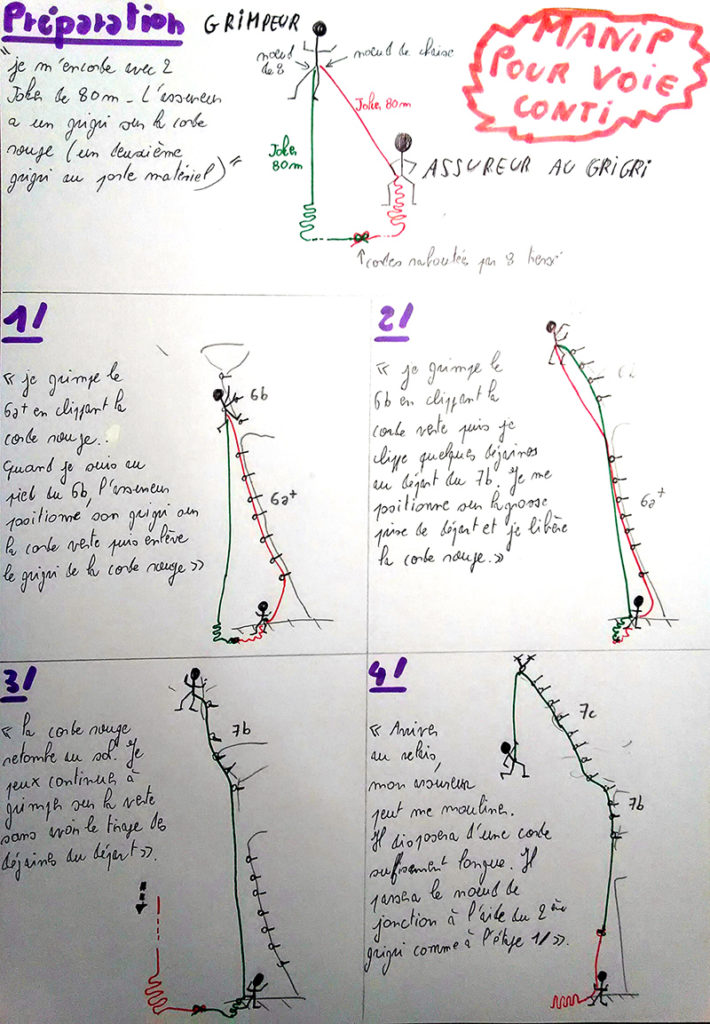 Préparation
GRIMPEUR
MANIP
POUR VOIE
CONTI
noeud
de 8
noeud de chaise
"je m'encorde avec 2
Joker de 80m - L'assureur
a un grigri sur la corde
rouge (un deuxième
grigri au porte matériel)"
Joker 80m
Joker
80m
ASSUREUR AU GRIGRI
cordes raboutées par 8 tressé
1/
« je grimpe le
6a+ en clippant la
corde rouge..
Quand je suis au
pied du 6b, l'assureur
positionne son grigri sur
la corde verte puis enlève
le grigri de la corde rouge »
6b
6a+
2/
« je grimpe le
6b en clippant la
corde verte puis je
clippe quelques dégaines
au départ du 7b. Je me
positionne sur la grosse
prise de départ et je libère
la corde rouge. »
6a+
3/
« la corde rouge
retombe au sol. Je
peux continuer à
grimper sur la verte
sans avoir le tirage des
dégaines du départ ».
7b
4/
« Arriver
au relais,
mon assureur
peut me mouliner.
Il disposera d'une corde
suffisament longue. Il
passera le noeud de
jonction à l'aide du 2ème
grigri comme à l'étape 1/ ».
7c
7b